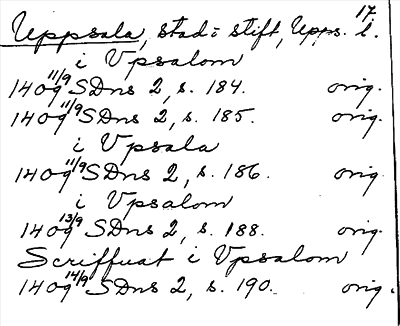 17.
Uppsala, stad o stift, Upps. l.
i Vpsalom
1409 11/9 SDns 2, s. 184. orig.
1409 11/9 SDns 2, s. 185. orig.
i Vpsala
1409 11/9 SDns 2, s. 186. orig.
i Vpsalom
1409 13/9 SDns 2, s. 188. orig.
Scriffuat i Vpsalom
1409 14/9 SDns 2, s. 190. orig.